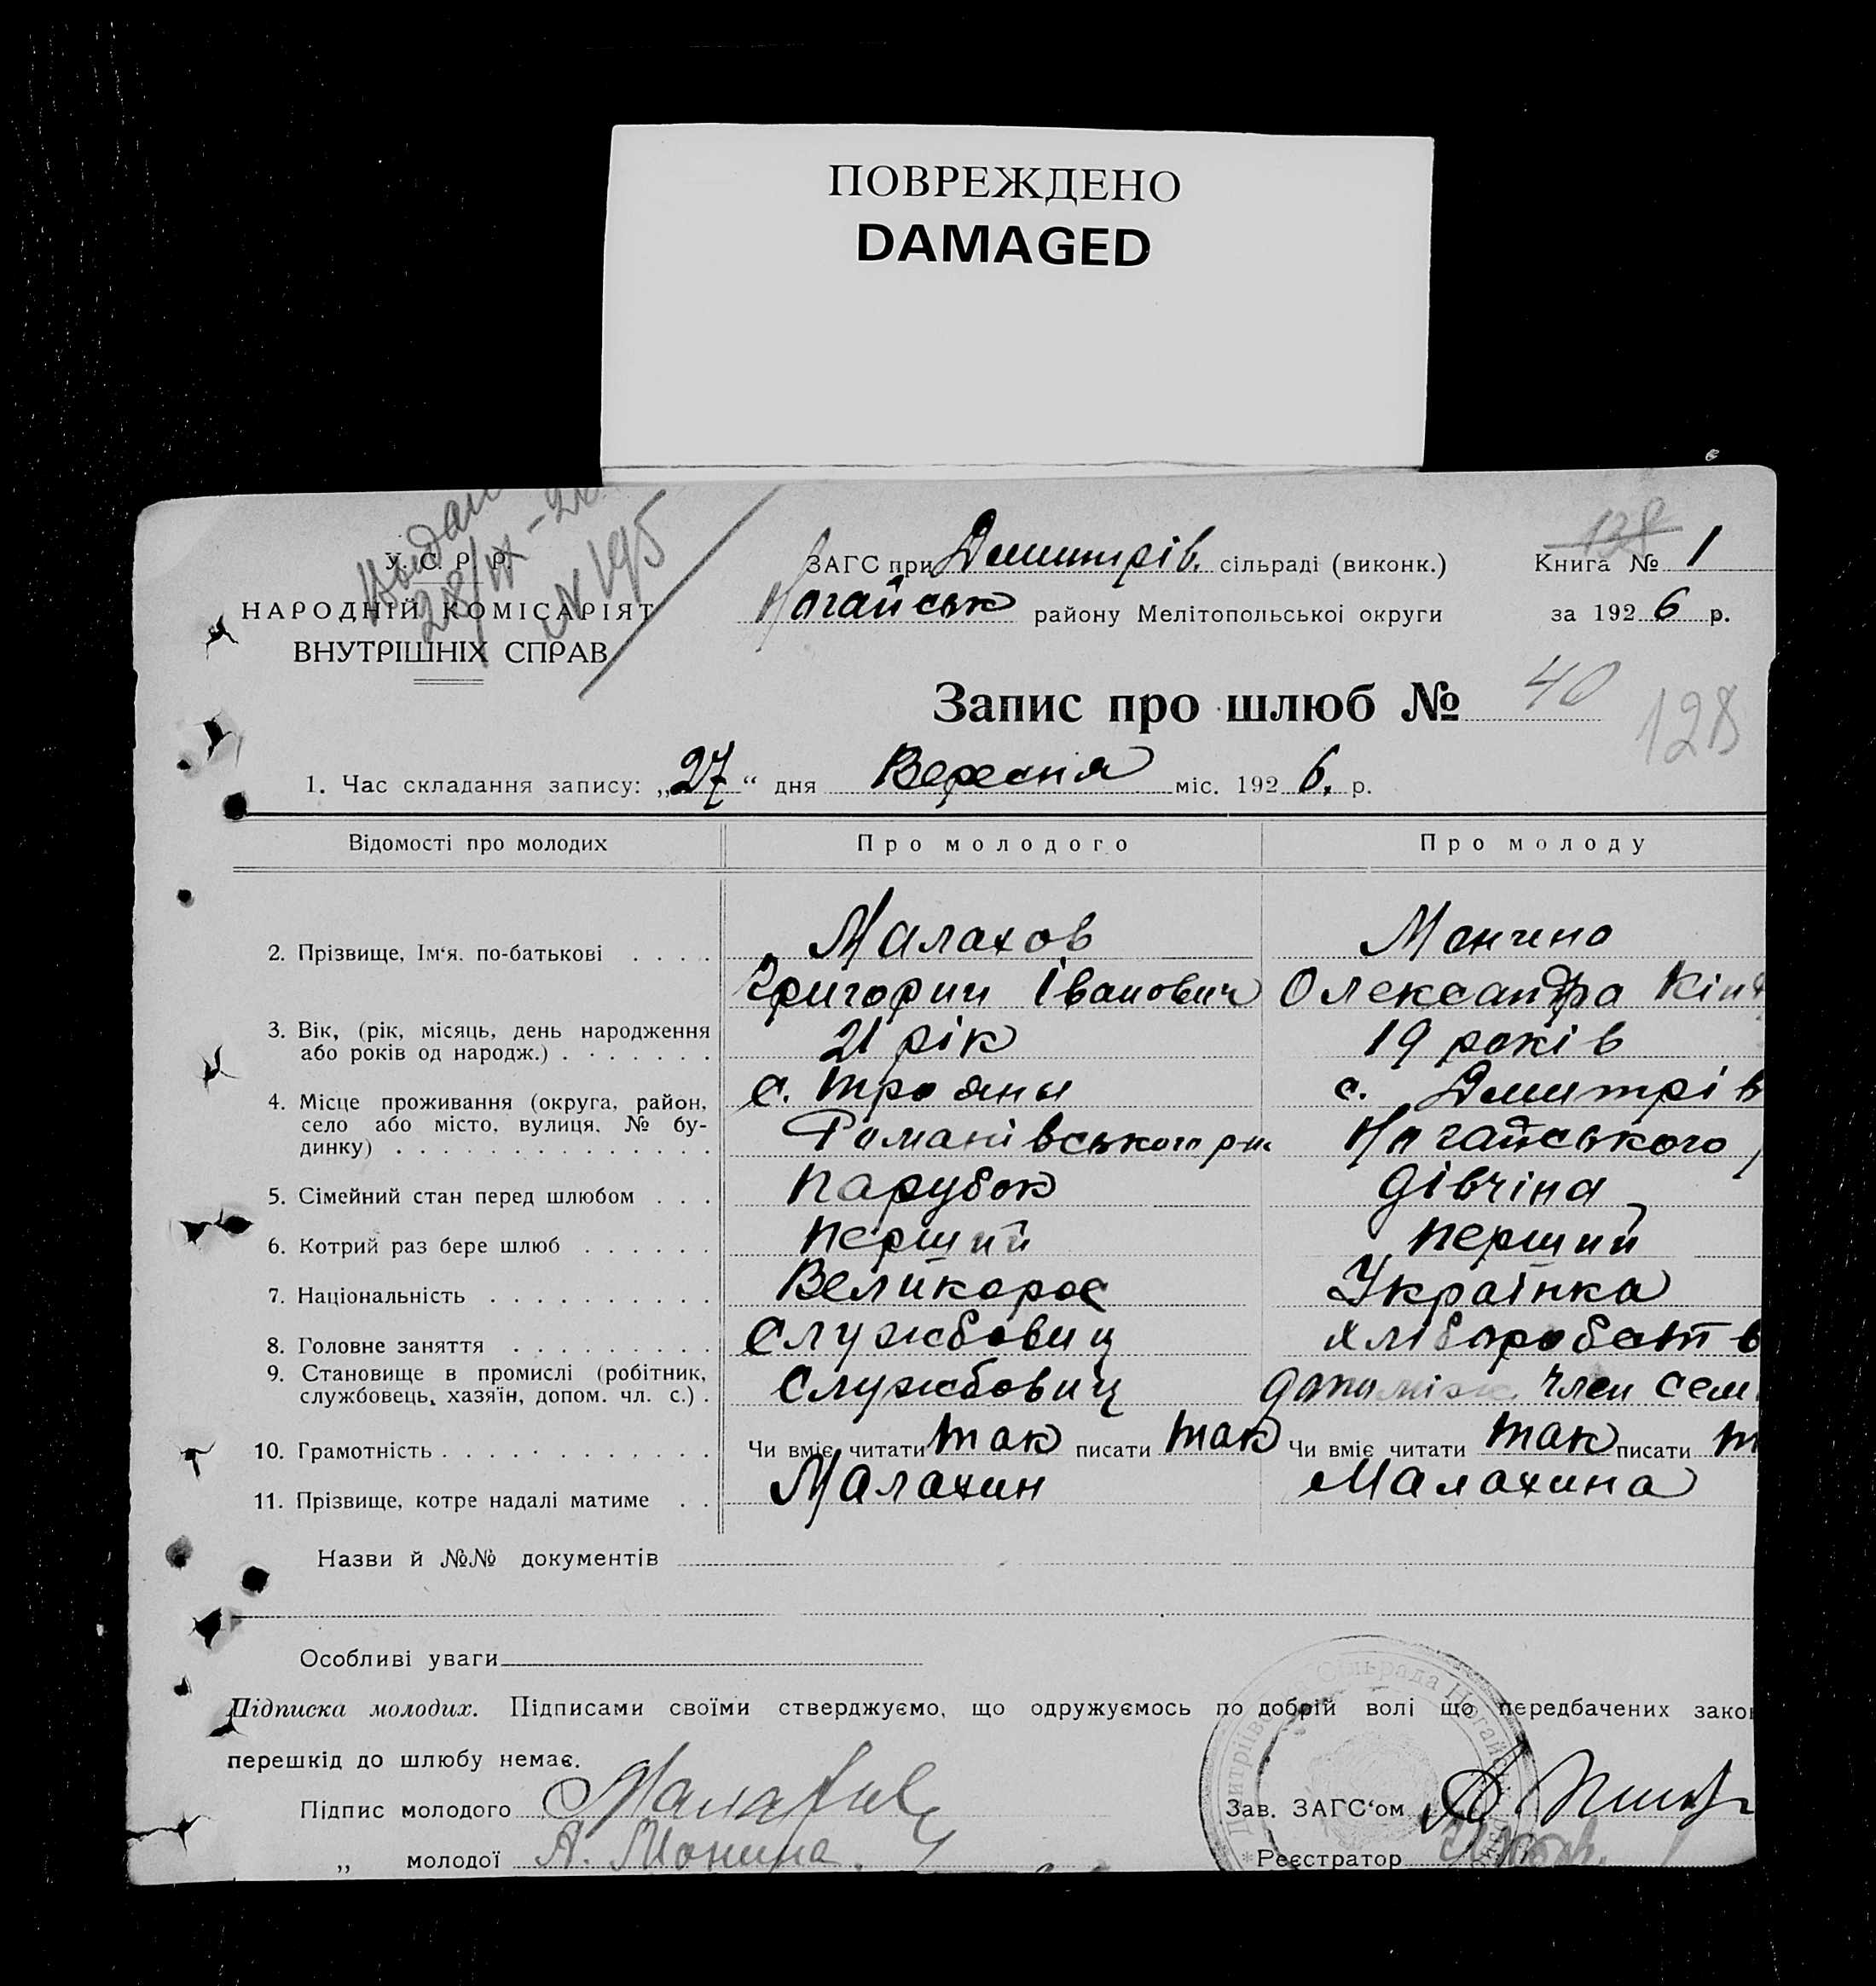 ПОВРЕЖДЕНО
DAMAGED
28/IX-26
№ 195
У. С. Р. Р.
НАРОДНІЙ КОМІСАРІЯТ
ВНУТРІШНІХ СПРАВ
ЗАГС при Дмитрів. сільраді (виконк.)
Ногайськ району Мелітопольської округи
138
Книга № 1
за 1926 р.
Запис про шлюб № 40
128
1. Час складання запису: „27“ дня Вересня міс. 1926. р.
Відомості про молодих Про молодого Про молоду
2. Прізвище, Ім‘я. по-батькові . . . . Малахов Монино
Григорий Іванович Олександра
3. Вік, (рік, місяць, день народження 21 рік 19 років
або років од народж.) . . . . . . .
4. Місце проживання (округа, район, с. Трояны с. Дмитрів
село або місто, вулиця, № бу- Романівського Ногайського
динку) . . . . . . . . . . . . . .
5. Сімейний стан перед шлюбом . . . парубок дівчіна
6. Котрий раз бере шлюб . . . . . . перший перший
7. Національність . . . . . . . . . . Великорос Українка
8. Головне заняття . . . . . . . . . Службовиц хліборобств
9. Становище в промислі (робітник, Службовиц допоміж. член сем
службовець, хазяїн, допом. чл. с.) .
10. Грамотність . . . . . . . . . . . . Чи вміє читати так писати так Чи вміє читати так писати т
11. Прізвище, котре надалі матиме . . Малахин Малахина
Назви й №№ документів
Особливі уваги
Підписка молодих. Підписами своїми стверджуємо, що одружуємось по добрій волі що передбачених закон
перешкід до шлюбу немає.
Підпис молодого Зав. ЗАГС‘ом
„ молодої А. Монина Реєстратор